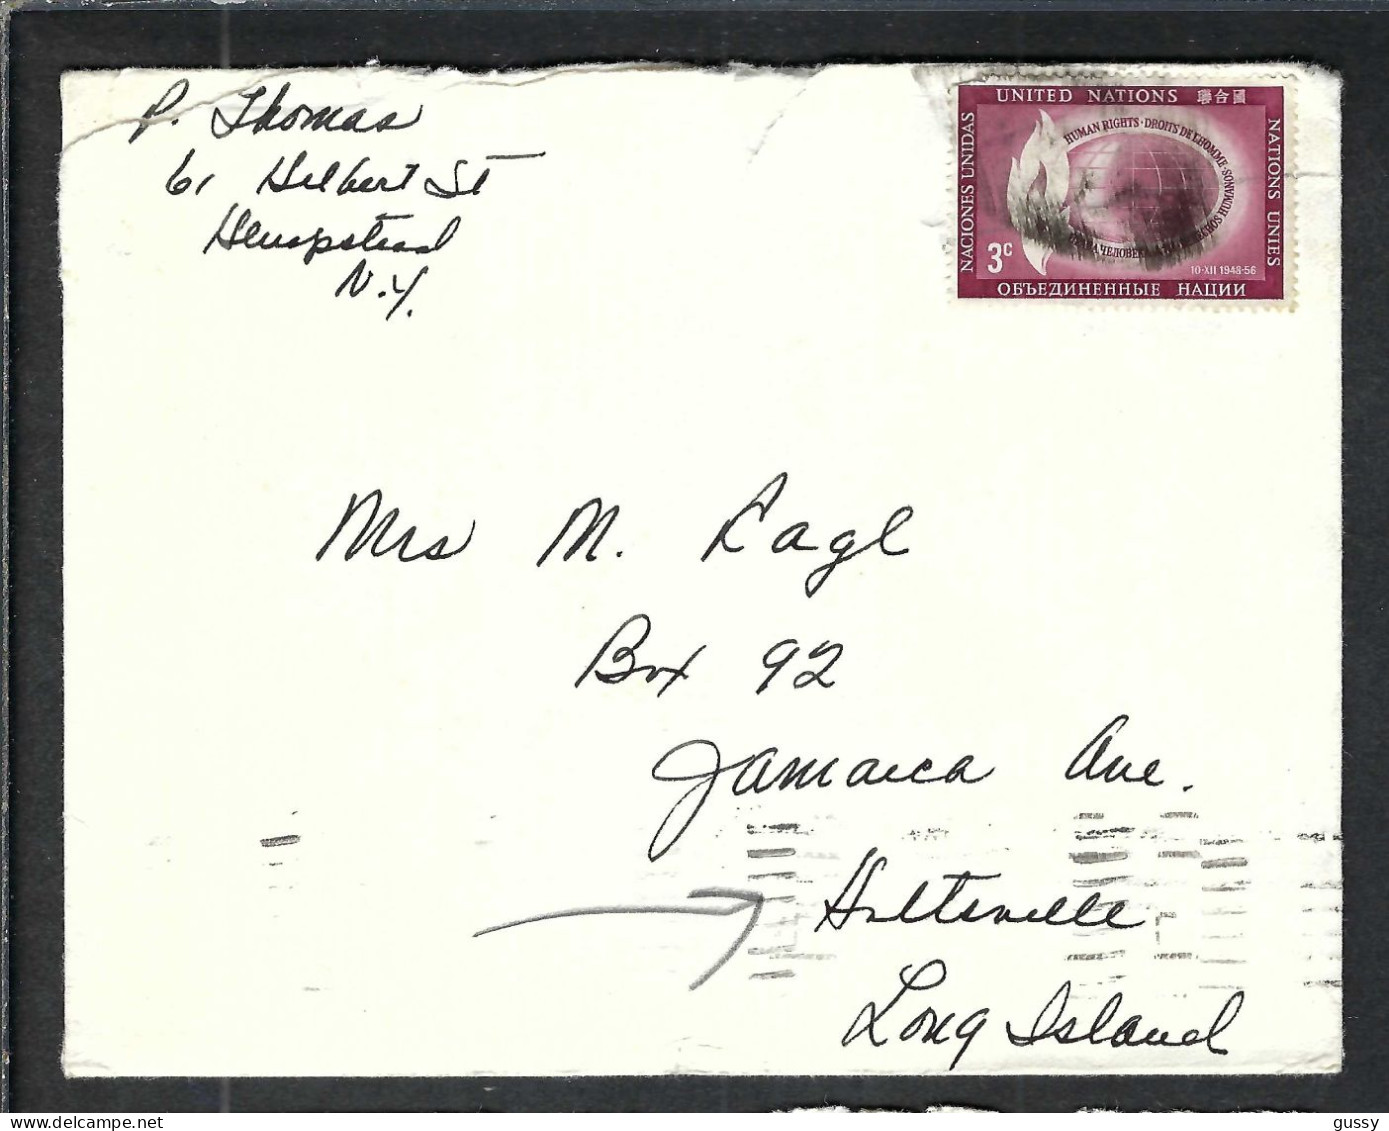 P. Thomas
61 Hilbert St
Hempstead
N.Y.
UNITED NATIONS 聯合國
NACIONES UNIDAS
NATIONS UNIES
HUMAN RIGHTS · DROITS DE L'HOMME ·
3c
10·XII 1948-56
ОБЪЕДИНЕННЫЕ НАЦИИ
Mrs M. Kagl
Box 92
Jamaica Ave.
Holtsville
Long Island
delcampe.net
gussy